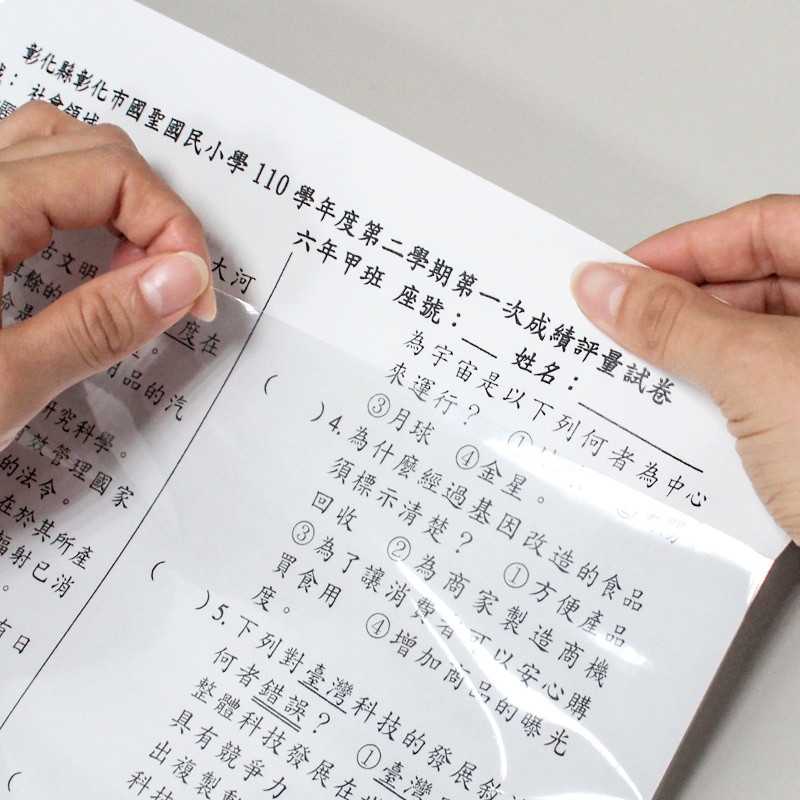 彰化縣彰化市國聖國民小學110學年度第二學期第一次成績評量試卷
社會領域
六年甲班 座號：__ 姓名：________
大河
古文明
其餘的
度在
。
品的汽
研究科學。
效管理國家
的法令。
在於其所產
輻射已消
。
有日
為宇宙是以下列何者為中心
來運行？ ①
③月球 ④金星。
( )4.為什麼經過基因改造的食品
須標示清楚？ ①方便產品
回收 ②為商家製造商機
③為了讓消費者可以安心購
買食用 ④增加商品的曝光
度。
( )5.下列對臺灣科技的發展敘
何者錯誤？ ①臺灣
整體科技發展在
具有競爭力
出複製
科技
(